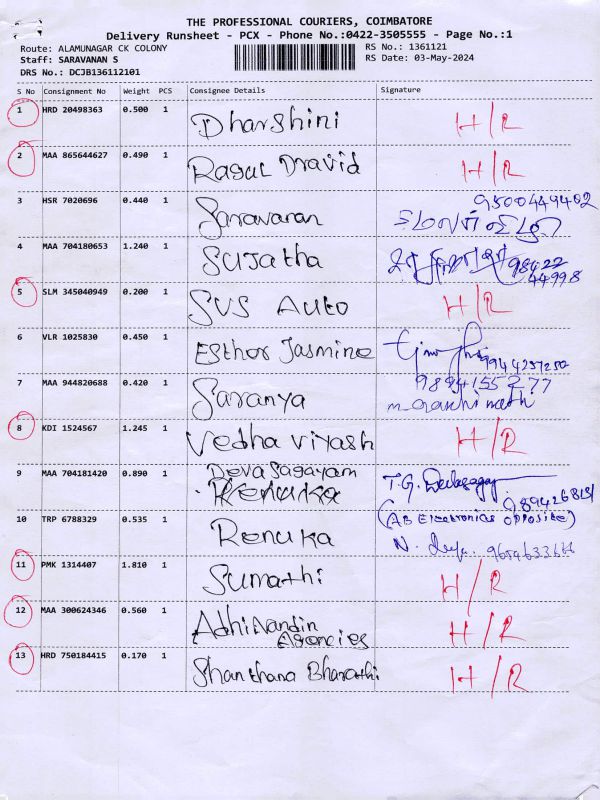 THE PROFESSIONAL COURIERS, COIMBATORE
Delivery Runsheet - PCX - Phone No.:0422-3505555 - Page No.:1
Route: ALAMUNAGAR CK COLONY
RS No.: 1361121
Staff: SARAVANAN S
RS Date: 03-May-2024
DRS No.: DCJB136112101
S No Consignment No Weight PCS Consignee Details Signature
1 HRD 20498363 0.500 1 Dharshini H/R
2 MAA 865644627 0.490 1 Ragul Dravid H/R
9500449402
3 HSR 7020696 0.440 1 Saravanan
4 MAA 704180653 1.240 1 Sujatha 98422
44998
5 SLM 345040949 0.200 1 SVS Auto H/R
6 VLR 1025830 0.450 1 Esther Jasmine
9894155277
7 MAA 944820688 0.420 1 Saranya
8 KDI 1524567 1.245 1 Vedha Viyash H/R
9 MAA 704181420 0.890 1 Deva Sagayam T.G.
(AB Electronics opposite)
10 TRP 6788329 0.535 1 Renuka N.
11 PMK 1314407 1.810 1 Sumathi H/R
12 MAA 300624346 0.560 1 AdhiNandin H/R
Agencies
13 HRD 750184415 0.170 1 Shanthana Bharathi H/R